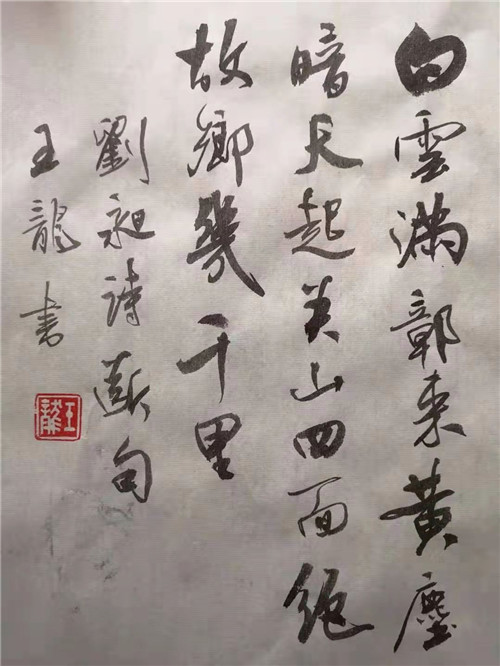 白雲滿鄣来黄塵
暗天起关山四面絕
故鄉幾千里
劉昶詩斷句
王龍書
王龍